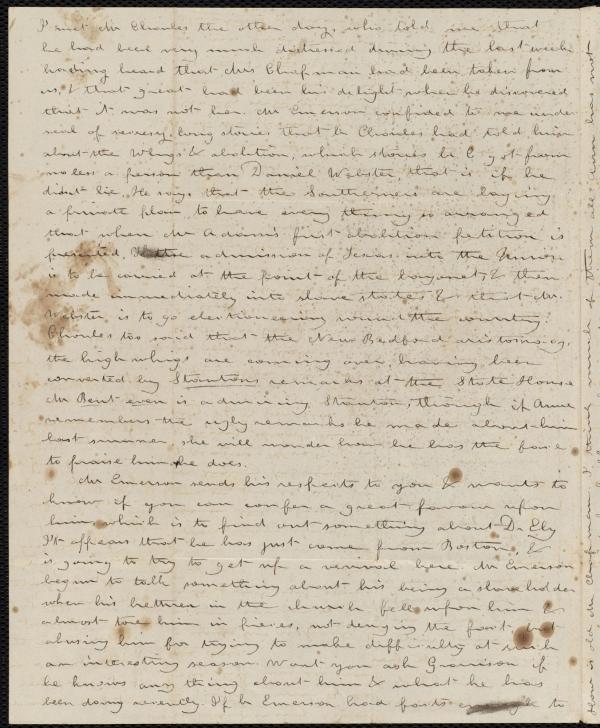 I met Mr Choules the other day, who told me that
he had been very much distressed during the last week
having heard that Mrs Chapman had been taken from
us, & that great had been his delight when he discovered
that it was not her. Mr Emerson confided to me under
seal of secresy, long stories that Mr Choules had told him
about the Whigs & abolition, which stories he C. got from
no less a person than Daniel Webster, that is if he
did'nt lie. He says that the Southerners are laying
a private plan, to have every thing so arranged
that when Mr Adams's first abolition petition is
presented, the admission of Texas into the Union
is to be carried at the point of the bayonet, & then
made immediately into slave states & that Mr.
Webster is to go electioneering round the country.
Choules too said that the New Bedford aristocracy,
the high whigs are coming over, having been
converted by Stanton's remarks at the State House
Mr Bent even is admiring Stanton, though if Anne
remembers the ugly remarks he made about him
last summer she will wonder how he has the face
to praise him he does.
Mr Emerson sends his respects to you & wants to
know if you can confer a great favour upon
him, which is to find out something about Dr. Ely
It appears that he has just come from Boston, &
is going to try to get up a revival here. Mr Emerson
begun to talk something about his being a slaveholder
when his brethren in the church fell upon him &
almost tore him in pieces, not denying the fact but
abusing him for trying to make difficulty at such
an interesting season. Want you ask Garrison if
he knows any thing about him & what he has
been doing recently. If Mr Emerson had facts enough to
How is old Mr Chapman, I think much of them all